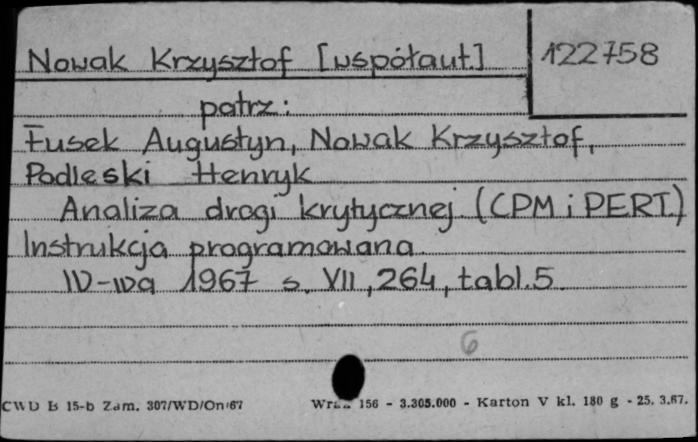 Nowak Krzysztof [współaut.]
122758
patrz:
Fusek Augustyn, Nowak Krzysztof,
Podleski Henryk
Analiza drogi krytycznej (CPM i PERT.)
Instrukcja programowana
W-wa 1967 s. VII, 264, tabl. 5.
6
CWD B 15-b Zam. 307/WD/On/67
156 - 3.305.000 - Karton V kl. 180 g - 25. 3.67.